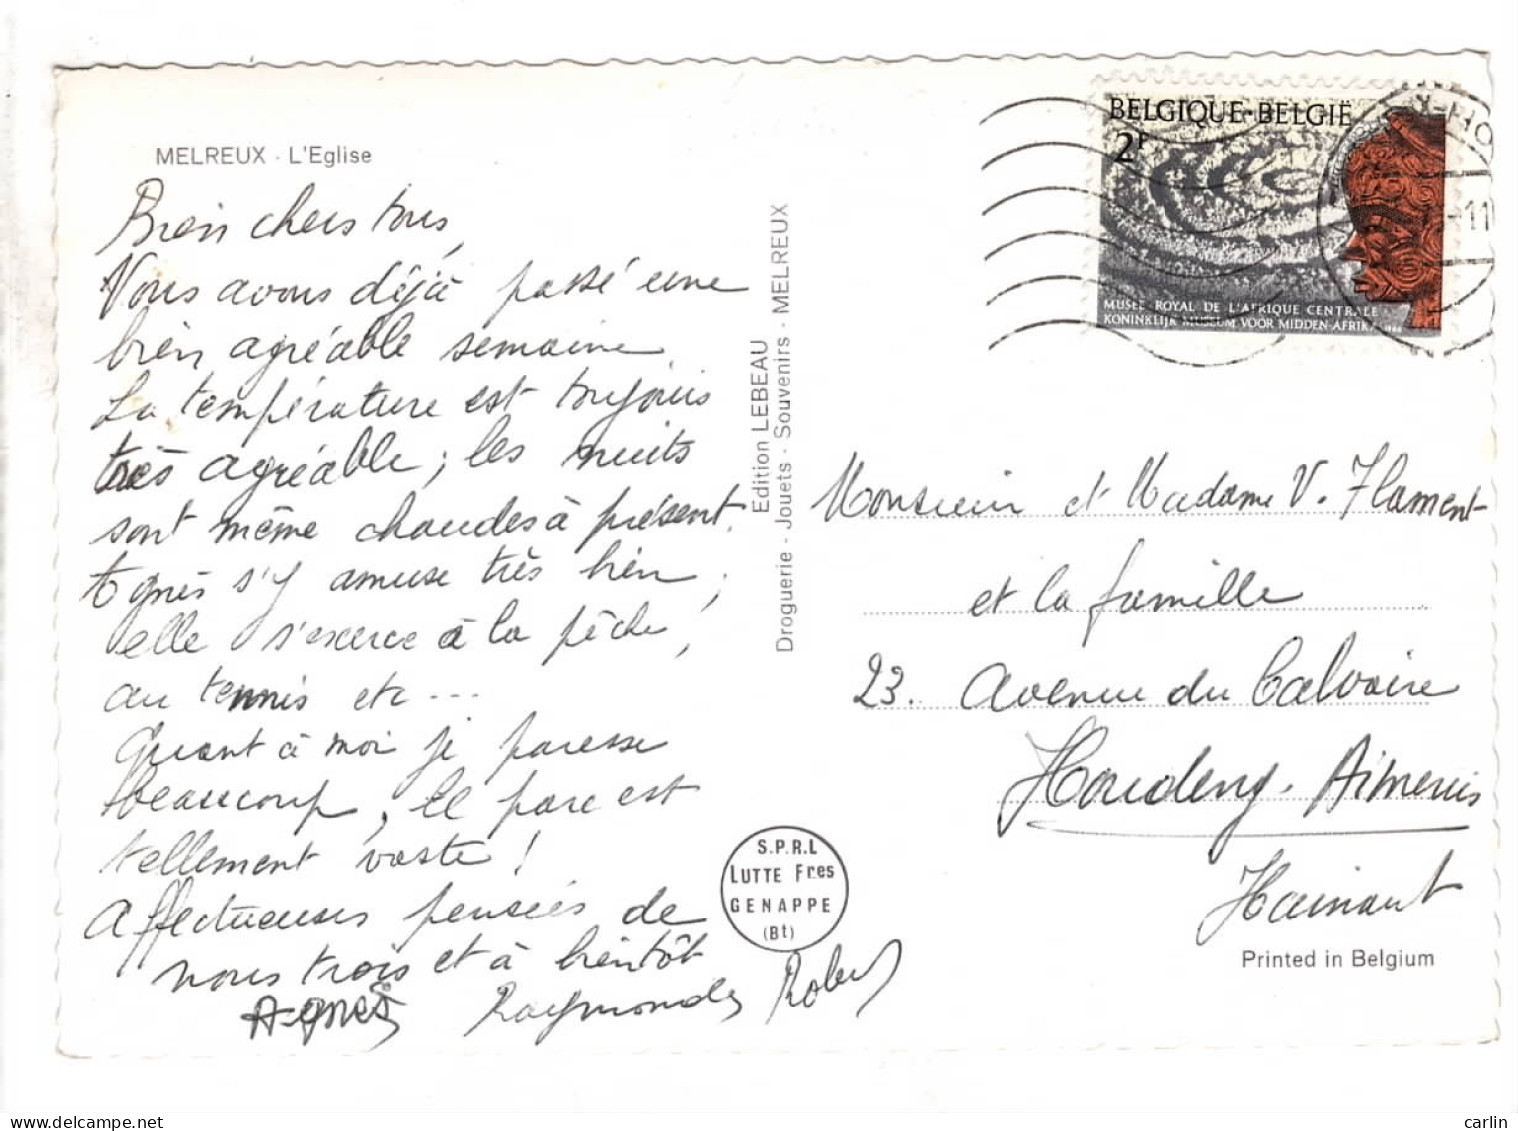 MELREUX - L'Eglise
Bien chers tous,
Nous avons déjà passé une
bien agréable semaine.
La température est toujours
très agréable ; les nuits
sont même chaudes à présent.
Agnès s'y amuse très bien ;
elle s'exerce à la pêche,
au tennis etc ---
Quant à moi je paresse
beaucoup, le parc est
tellement vaste !
Affectueuses pensées de
nous trois et à bientôt
Agnès Raymonde Robert
Edition LEBEAU
Droguerie - Jouets - Souvenirs - MELREUX
S.P.R.L
LUTTE Fres
GENAPPE
(Bt)
BELGIQUE-BELGIË
2F
MUSEE ROYAL DE L'AFRIQUE CENTRALE
KONINKLIJK MUSEUM VOOR MIDDEN-AFRIKA 1966
X-HO
-11
Monsieur et Madame V. Flament
et la famille
23. Avenue du Calvaire
Houdeng-Aimeries
Hainaut
Printed in Belgium
delcampe.net
carlin